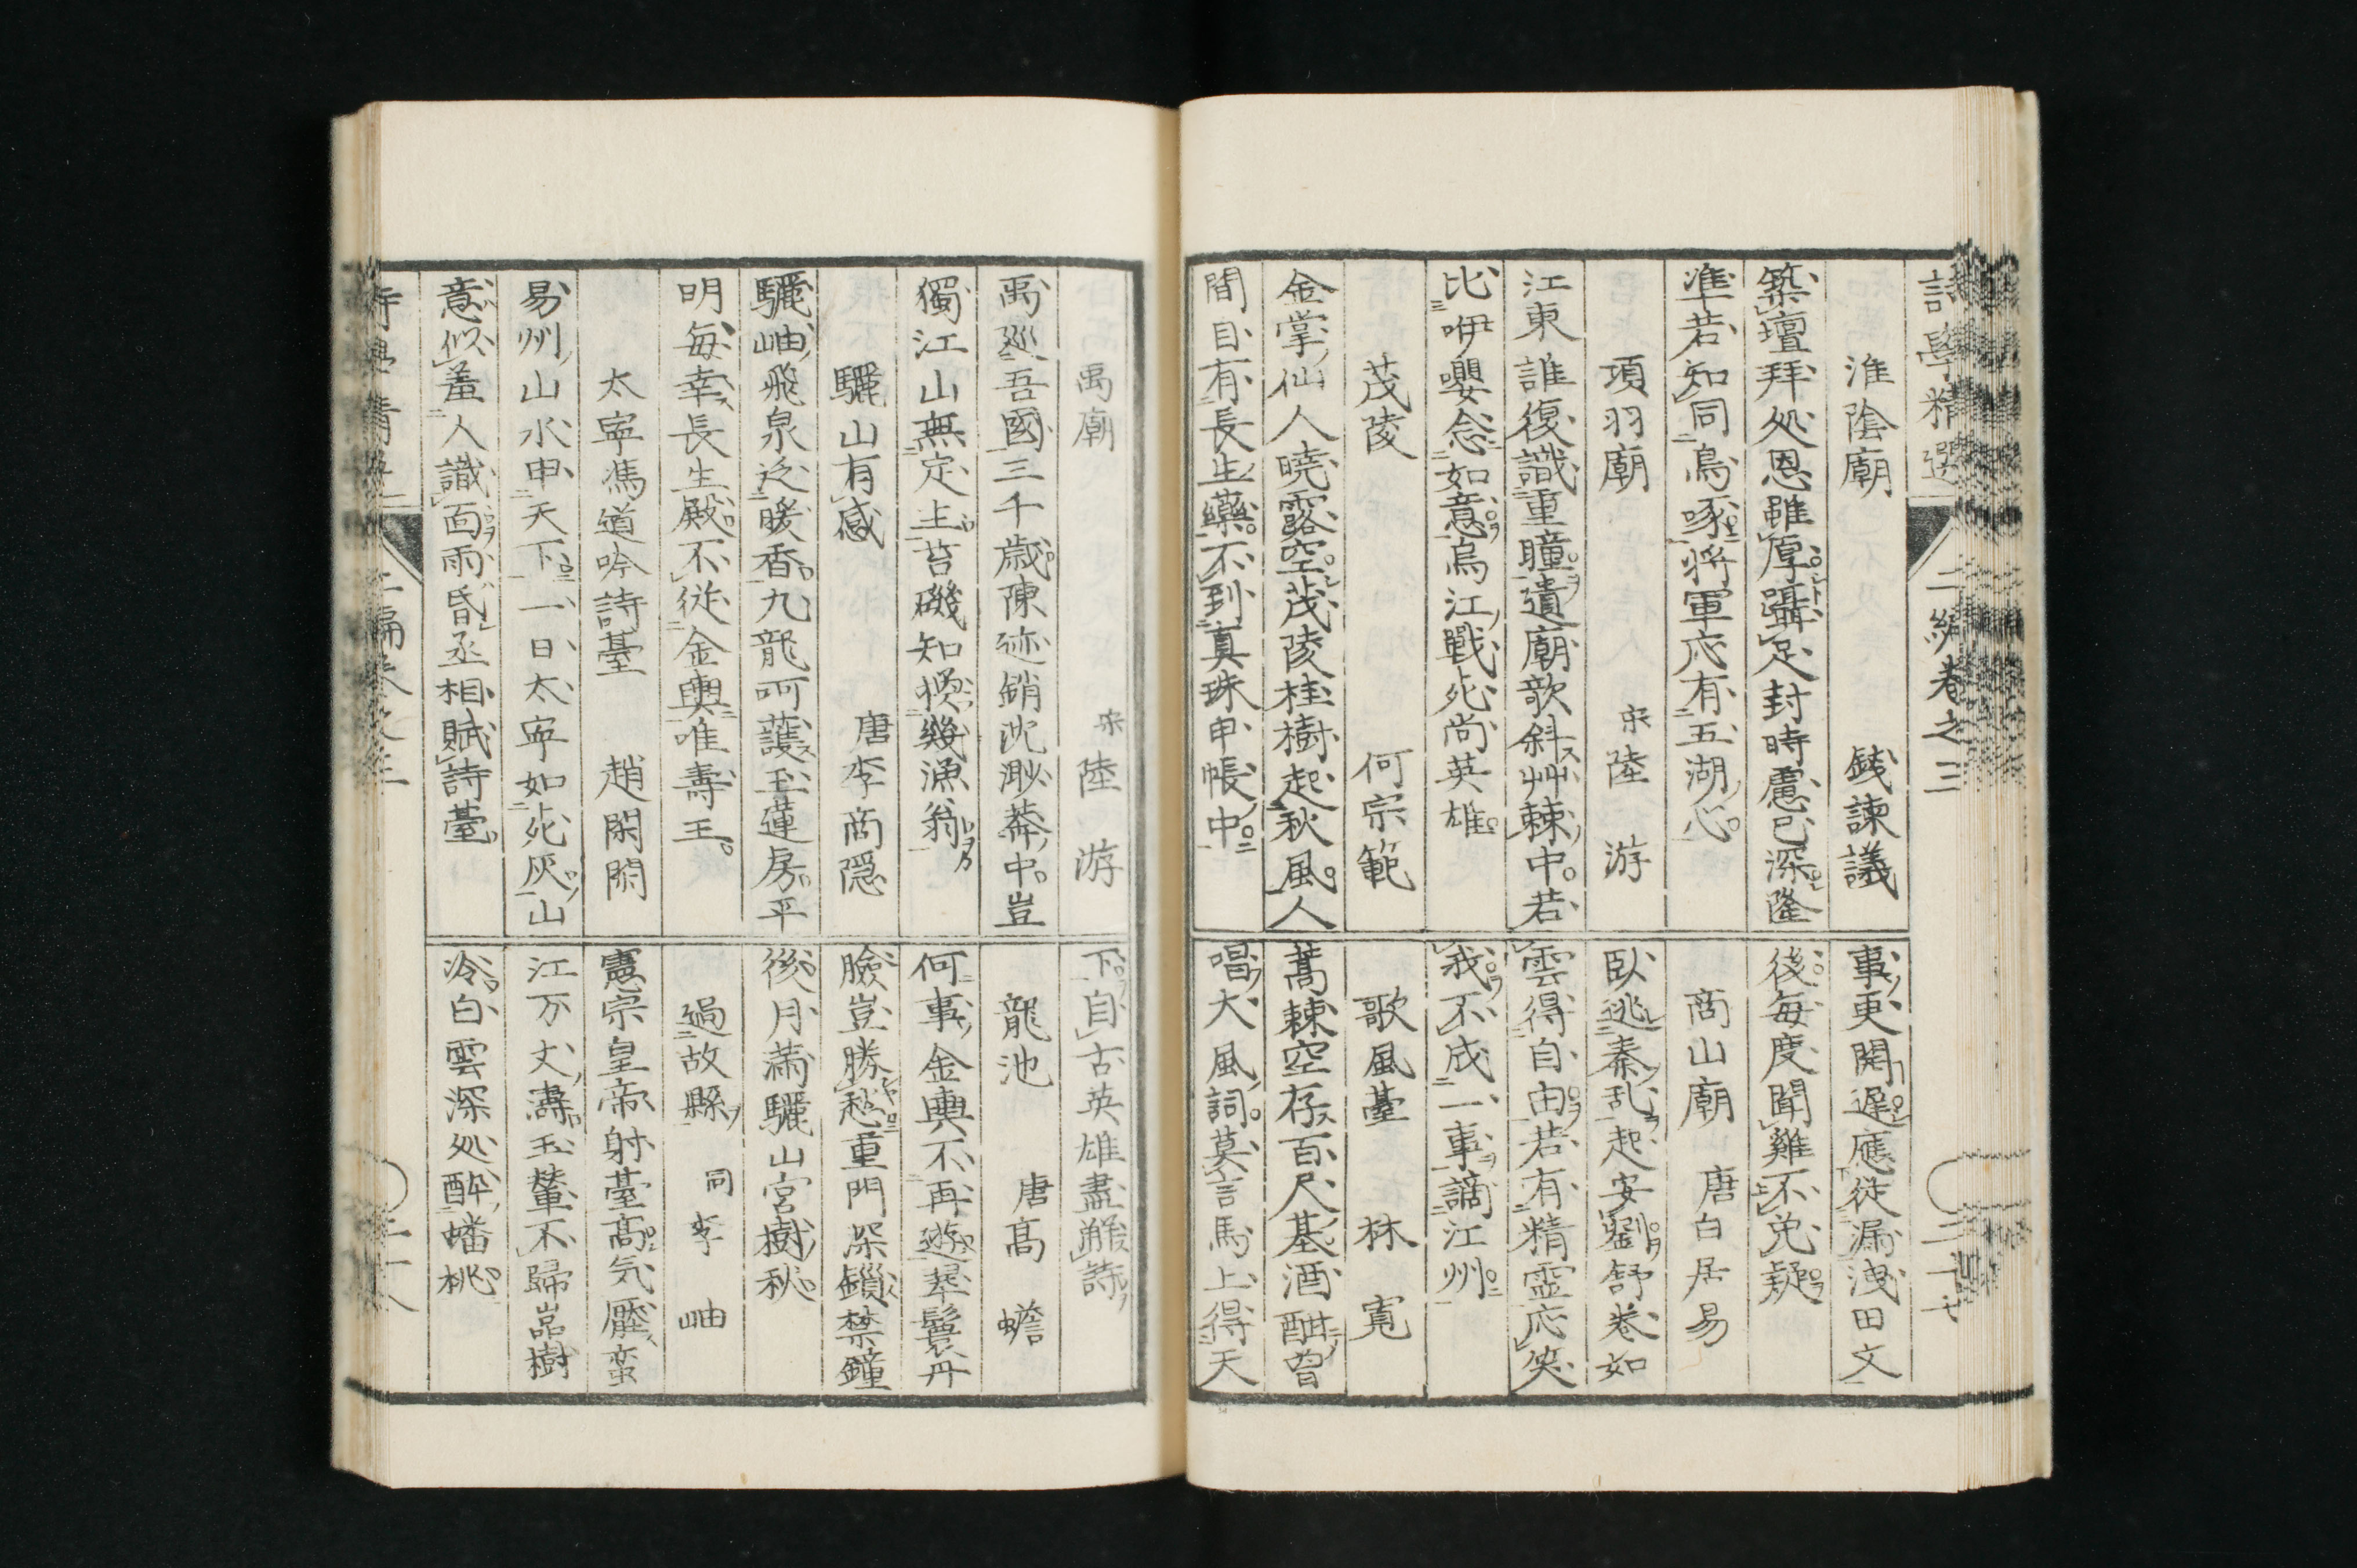 詩學精選 二編卷之三
淮陰廟 錢諫議
築壇拜処恩雖厚躡足封時慮已深隆
準若知同鳥啄將軍応有五湖心
項羽廟 宋陸游
江東誰復識重瞳遺廟欹斜艸棘中若
比咿嚶念如意烏江戰死尚英雄
茂陵 何宗範
金掌仙人曉露空茂陵桂樹起秋風人
間自有長生藥不到真珠甲帳中
事更関遅應徒漏洩田文
後每度聞雞不免疑
商山廟 唐白居易
臥逃秦乱起安劉舒卷如
雲得自由若有精霊応笑
我不成一事謫江州
歌風臺 林寬
蒿棘空存百尺基酒酣曾
唱大風詞莫言馬上得天
禹廟 宋陸游
禹巡吾國三千歲陳迹銷沈渺莽中豈
獨江山無定主苔磯知換幾漁翁
驪山有感 唐李商隠
驪岫飛泉泛暖香九龍呵護玉蓮房平
明每幸長生殿不従金輿唯壽王
太寧馮道吟詩臺 趙閑閑
易州山水甲天下一日太寧如死灰山
意似羞人識面雨昏丞相賦詩臺
下自古英雄盡解詩
龍池 唐高蟾
何事金輿不再遊翠鬟丹
臉豈勝愁重門深鎖禁鐘
後月満驪山宮樹秋
過故縣 同李岫
憲宗皇帝射臺高気壓蛮
江万丈濤玉輦不歸嵓樹
冷白雲深処酔蟠桃